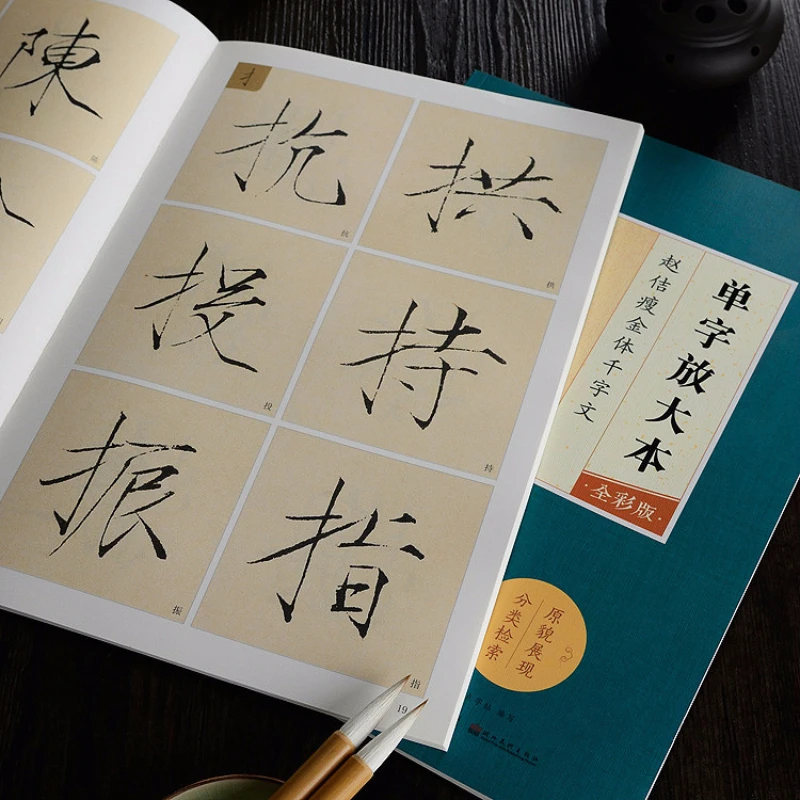 陳
扌
抗
抗
拱
拱
投
投
持
持
振
振
指
指
19
单字放大本
赵佶瘦金体千字文
·全彩版·
原貌展现
分类检索
编写